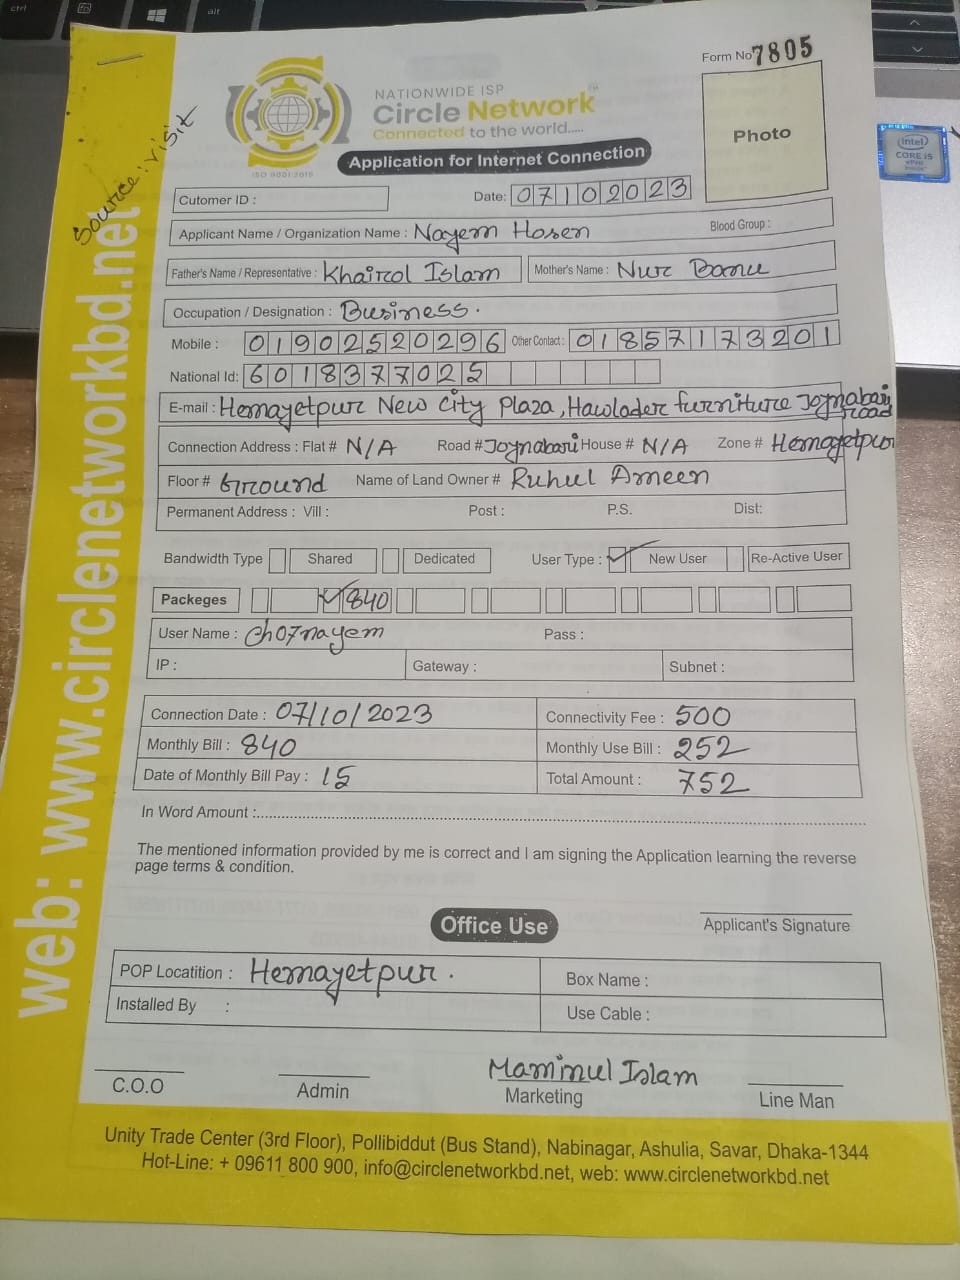 Form No 7805
NATIONWIDE ISP
Circle Network™
Connected to the world.....
ISO 9001:2015
Application for Internet Connection
Photo
Source: visit
web: www.circlenetworkbd.net
Cutomer ID :
Date: 07102023
Applicant Name / Organization Name : Nayem Hosen Blood Group :
Father's Name / Representative : Khairol Islam Mother's Name : Nur Banu
Occupation / Designation : Business.
Mobile : 01902520296 Other Contact : 01857173201
National Id: 6018377025
E-mail : Hemayetpur New City Plaza, Hawlader furniture Joynabari road
Connection Address : Flat # N/A Road # Joynabari House # N/A Zone # Hemayetpur
Floor # Ground Name of Land Owner # Ruhul Ameen
Permanent Address : Vill : Post : P.S. Dist:
Bandwidth Type Shared Dedicated User Type : New User Re-Active User
Packeges 840
User Name : ch07nayem Pass :
IP : Gateway : Subnet :
Connection Date : 07/10/2023 Connectivity Fee : 500
Monthly Bill : 840 Monthly Use Bill : 252
Date of Monthly Bill Pay : 15 Total Amount : 752
In Word Amount :
The mentioned information provided by me is correct and I am signing the Application learning the reverse
page terms & condition.
Office Use
Applicant's Signature
POP Locatition : Hemayetpur. Box Name :
Installed By : Use Cable :
Maminul Islam
C.O.O Admin Marketing Line Man
Unity Trade Center (3rd Floor), Pollibiddut (Bus Stand), Nabinagar, Ashulia, Savar, Dhaka-1344
Hot-Line: + 09611 800 900, info@circlenetworkbd.net, web: www.circlenetworkbd.net
ctrl
fn
alt
intel
CORE i5
vPro